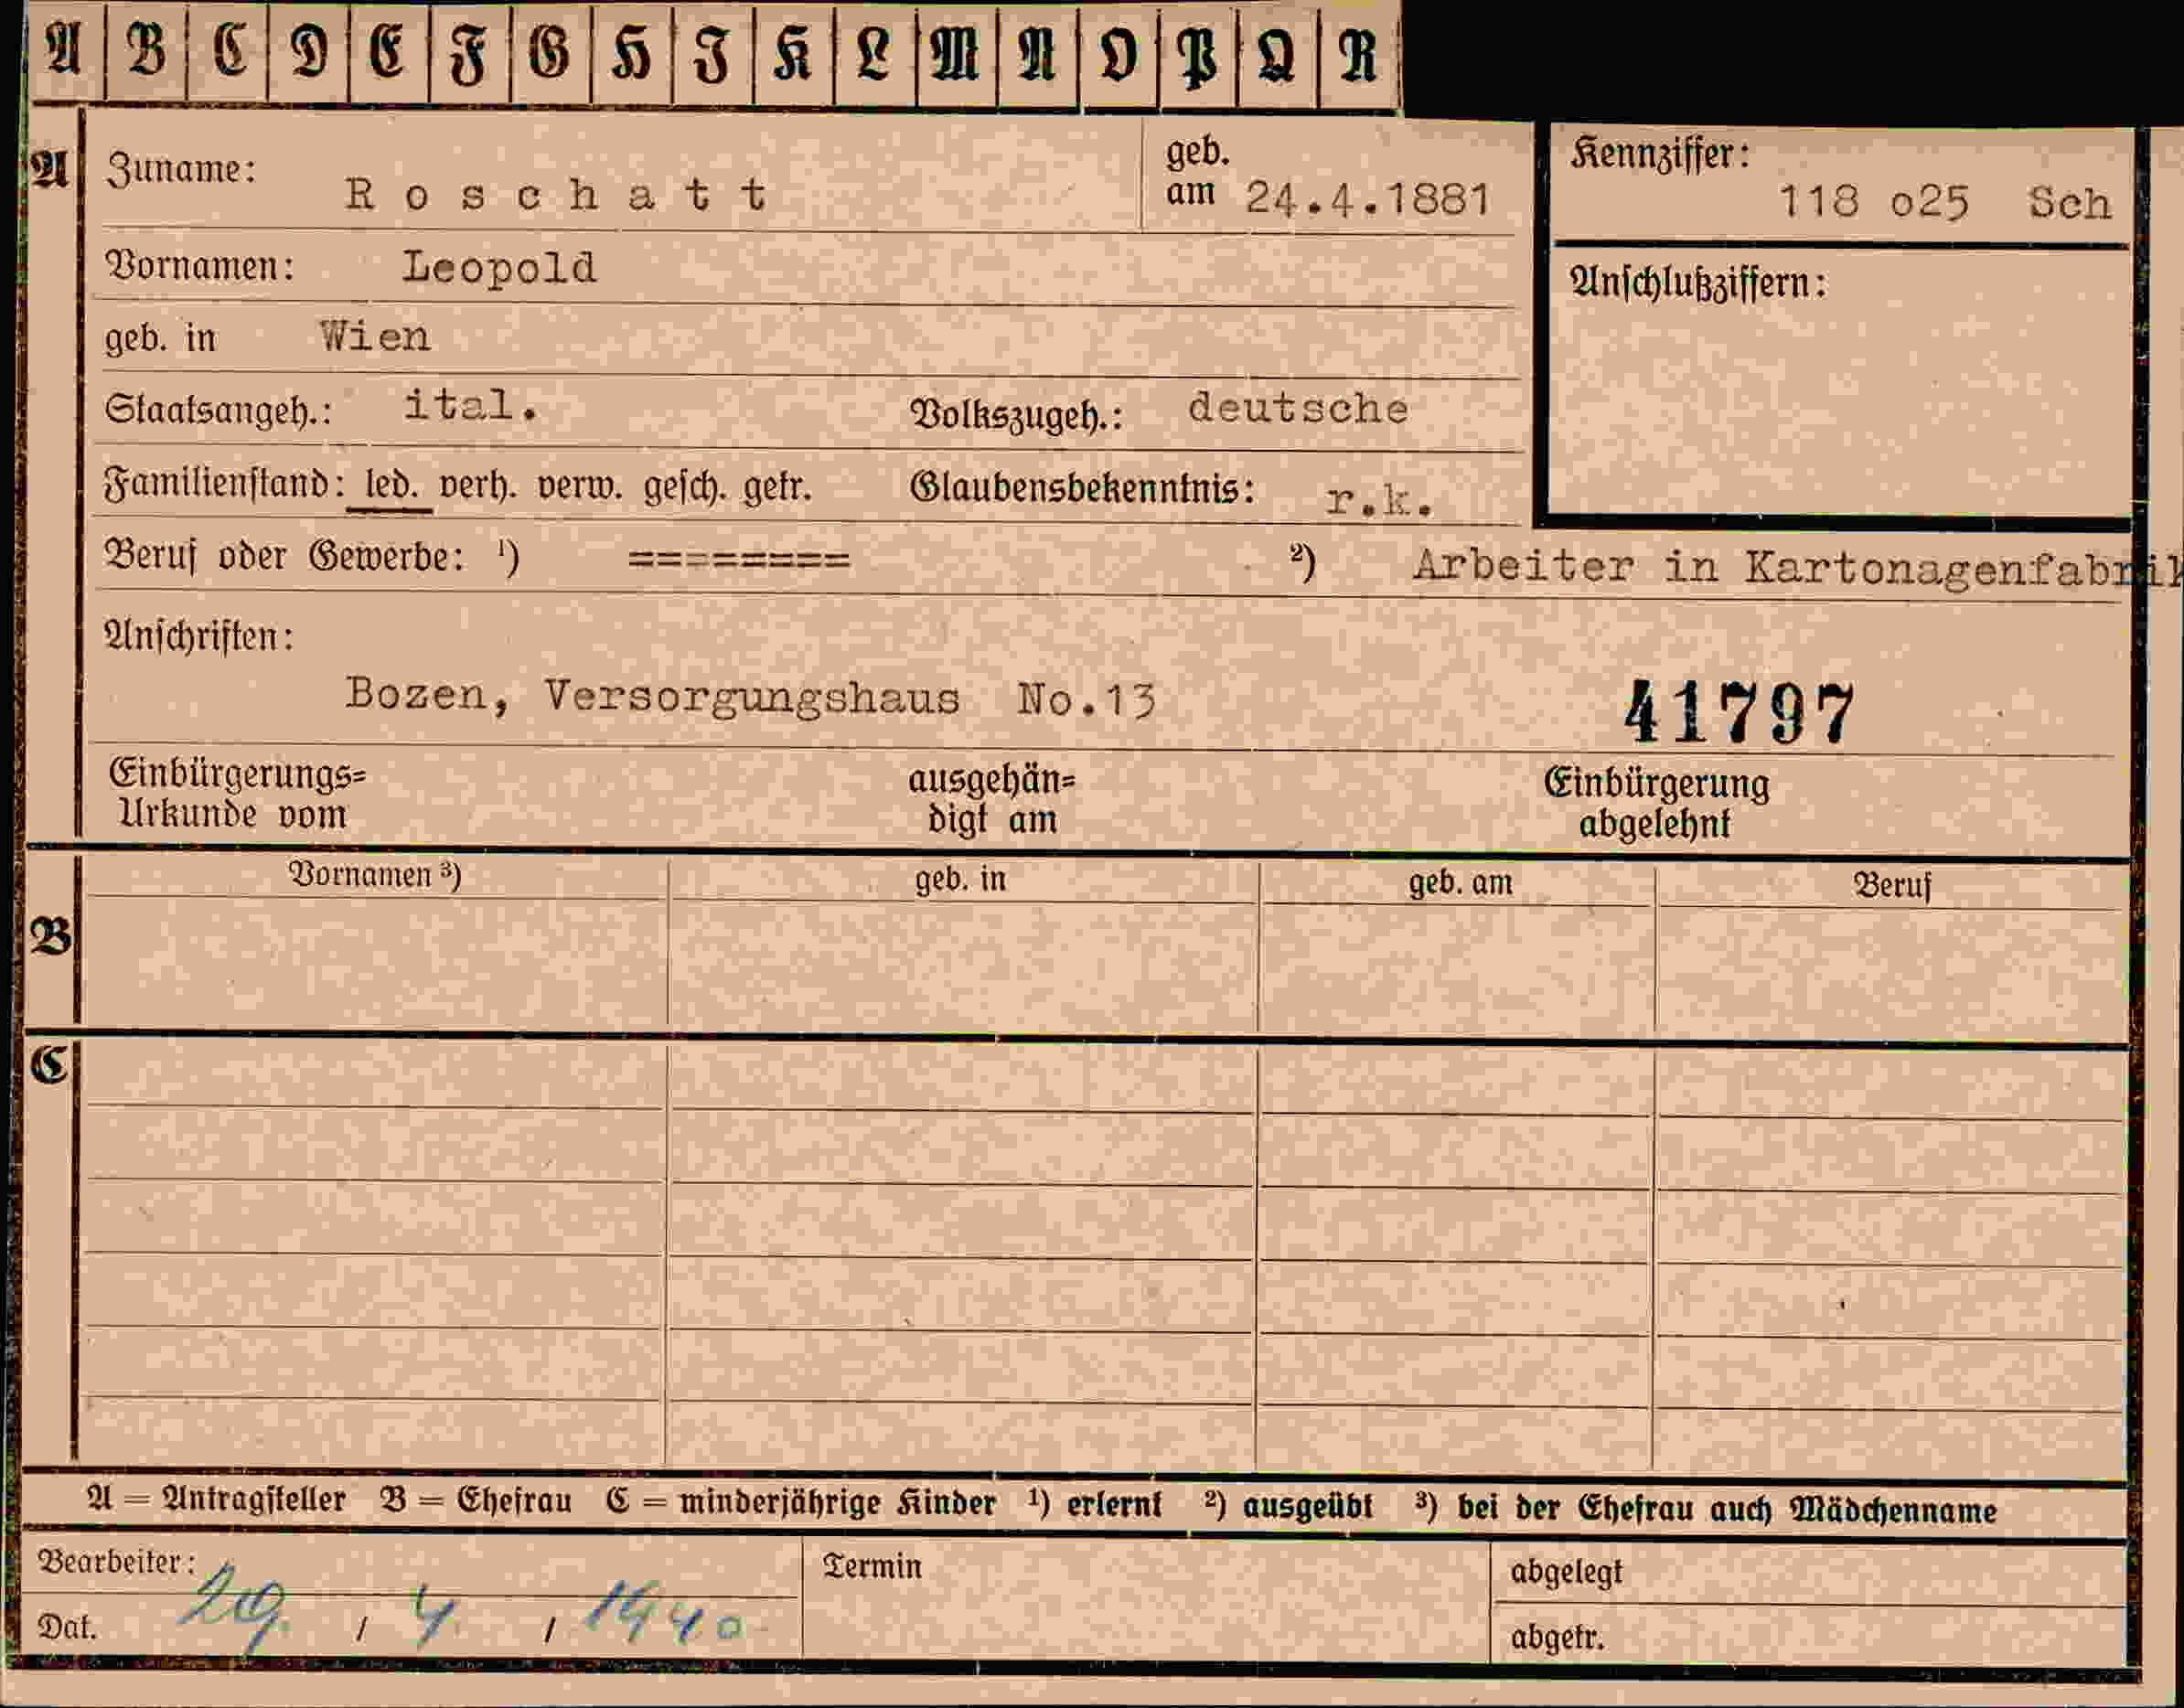 A B C D E F G H J K L M N O P Q R
A
Zuname: Roschatt
geb. am 24.4.1881
Kennziffer: 118 o25 Sch
Vornamen: Leopold
Anschlußziffern:
geb. in Wien
Staatsangeh.: ital. Volkszugeh.: deutsche
Familienstand: led. verh. verw. gesch. getr. Glaubensbekenntnis: r.k.
Beruf oder Gewerbe: ¹) ======== ²) Arbeiter in Kartonagenfabrik
Anschriften:
Bozen, Versorgungshaus No.13 41797
Einbürgerungs= ausgehän= Einbürgerung
Urkunde vom digt am abgelehnt
Vornamen ³) geb. in geb. am Beruf
B
C
A = Antragsteller B = Ehefrau C = minderjährige Kinder ¹) erlernt ²) ausgeübt ³) bei der Ehefrau auch Mädchenname
Bearbeiter: Termin abgelegt
Dat. 29. / 4. / 1940 abgetr.